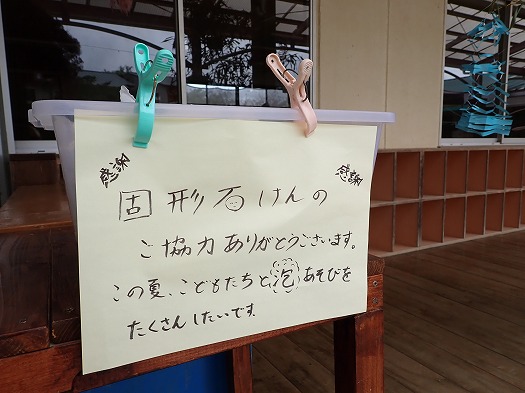 感謝
感謝
固形石けんの
ご協力ありがとうございます。
この夏、こどもたちと泡あそびを
たくさんしたいです。